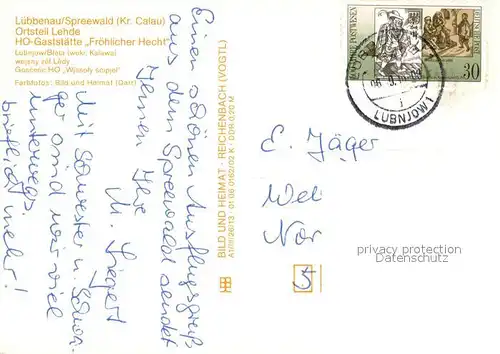 Lübbenau/Spreewald (Kr. Calau)
Ortsteil Lehde
HO-Gaststätte „Fröhlicher Hecht"
Lubnjow/Błota (wokr. Kalawa)
wejsny źěl Lědy
Gosćeńc HO „Wjasoły szcipel"
Farbfotos: Bild und Heimat (Darr)
Einen schönen Ausflugsgruß
aus dem Spreewald sendet
Ihnen Ihr
M. Siegert
Mit Schwester u. Schwa-
ger sind wir viel
unterwegs.
brieflich mehr!
BILD UND HEIMAT · REICHENBACH (VOGTL)
A1/III/26/13 · 01 06 0162/02 K · DDR 0,20 M
POSTWESEN
30
LUBNJOW 1
E. Jäger
Wel
Nor
5
privacy protection
Datenschutz